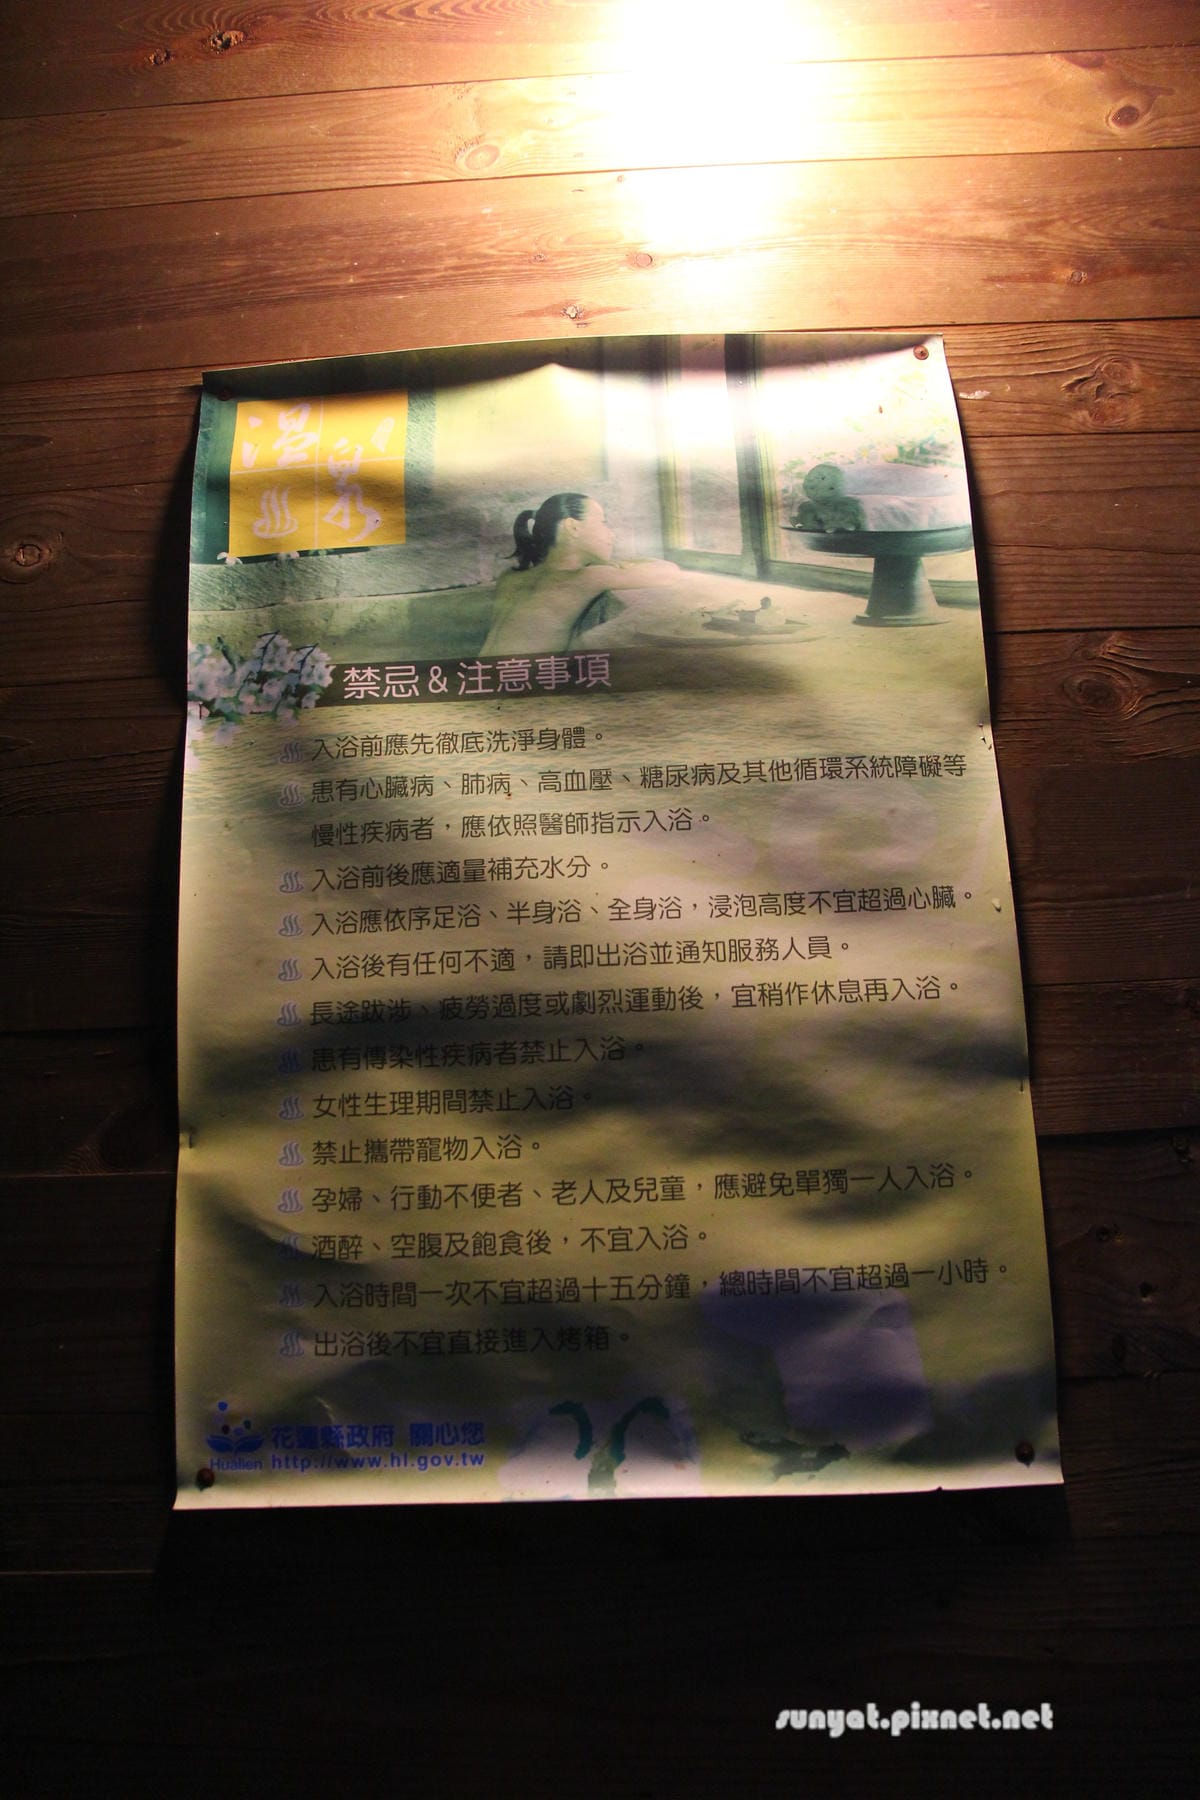 溫泉
禁忌&注意事項
入浴前應先徹底洗淨身體。
患有心臟病、肺病、高血壓、糖尿病及其他循環系統障礙等
慢性疾病者，應依照醫師指示入浴。
入浴前後應適量補充水分。
入浴應依序足浴、半身浴、全身浴，浸泡高度不宜超過心臟。
入浴後有任何不適，請即出浴並通知服務人員。
長途跋涉、疲勞過度或劇烈運動後，宜稍作休息再入浴。
患有傳染性疾病者禁止入浴。
女性生理期間禁止入浴。
禁止攜帶寵物入浴。
孕婦、行動不便者、老人及兒童，應避免單獨一人入浴。
酒醉、空腹及飽食後，不宜入浴。
入浴時間一次不宜超過十五分鐘，總時間不宜超過一小時。
出浴後不宜直接進入烤箱。
花蓮縣政府 關心您
Hualien http://www.hl.gov.tw
sunyat.pixnet.net